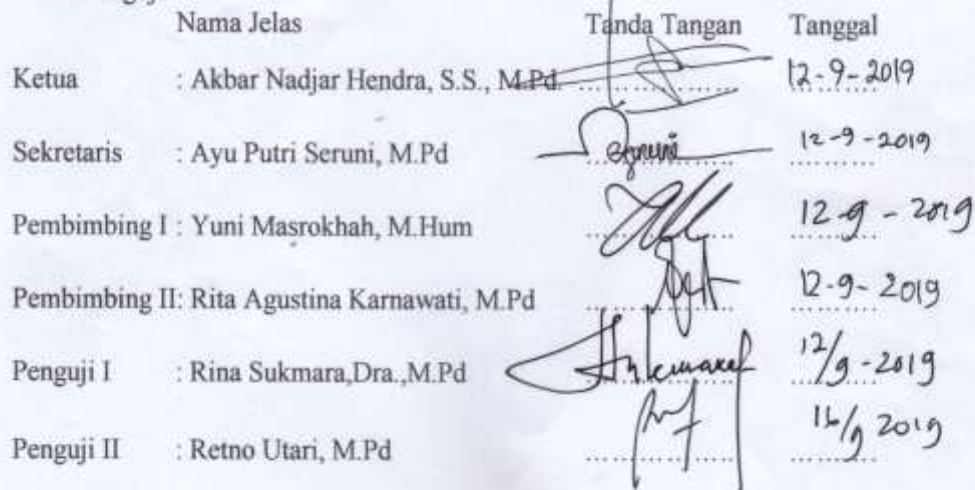 Nama Jelas Tanda Tangan Tanggal
Ketua : Akbar Nadjar Hendra, S.S., M.Pd. 12-9-2019
Sekretaris : Ayu Putri Seruni, M.Pd 12-9-2019
Pembimbing I : Yuni Masrokhah, M.Hum 12-9-2019
Pembimbing II: Rita Agustina Karnawati, M.Pd 12-9-2019
Penguji I : Rina Sukmara,Dra.,M.Pd 12/9-2019
Penguji II : Retno Utari, M.Pd 2019